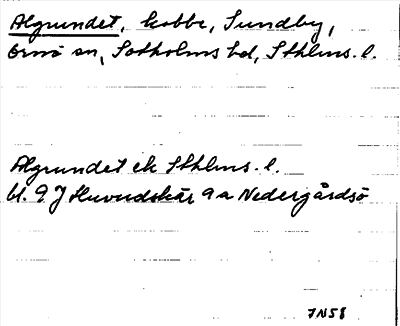 Algrundet, kobbe, Sundby,
Ornö sn, Sotholms hd, Sthlms. l.
Algrundet ek Sthlms. l.
U. 9 J Huvudskär 9 a Nedergårdsö
7N58